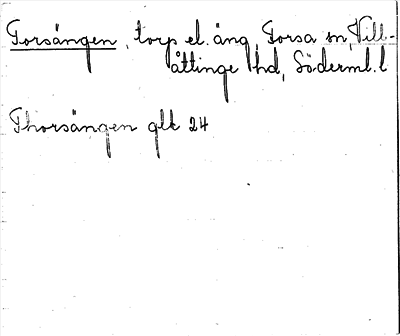 Torsången, torp el. äng, Forsa sn, Vill-
åttinge hd, Söderml. l
Thorsången glk 24